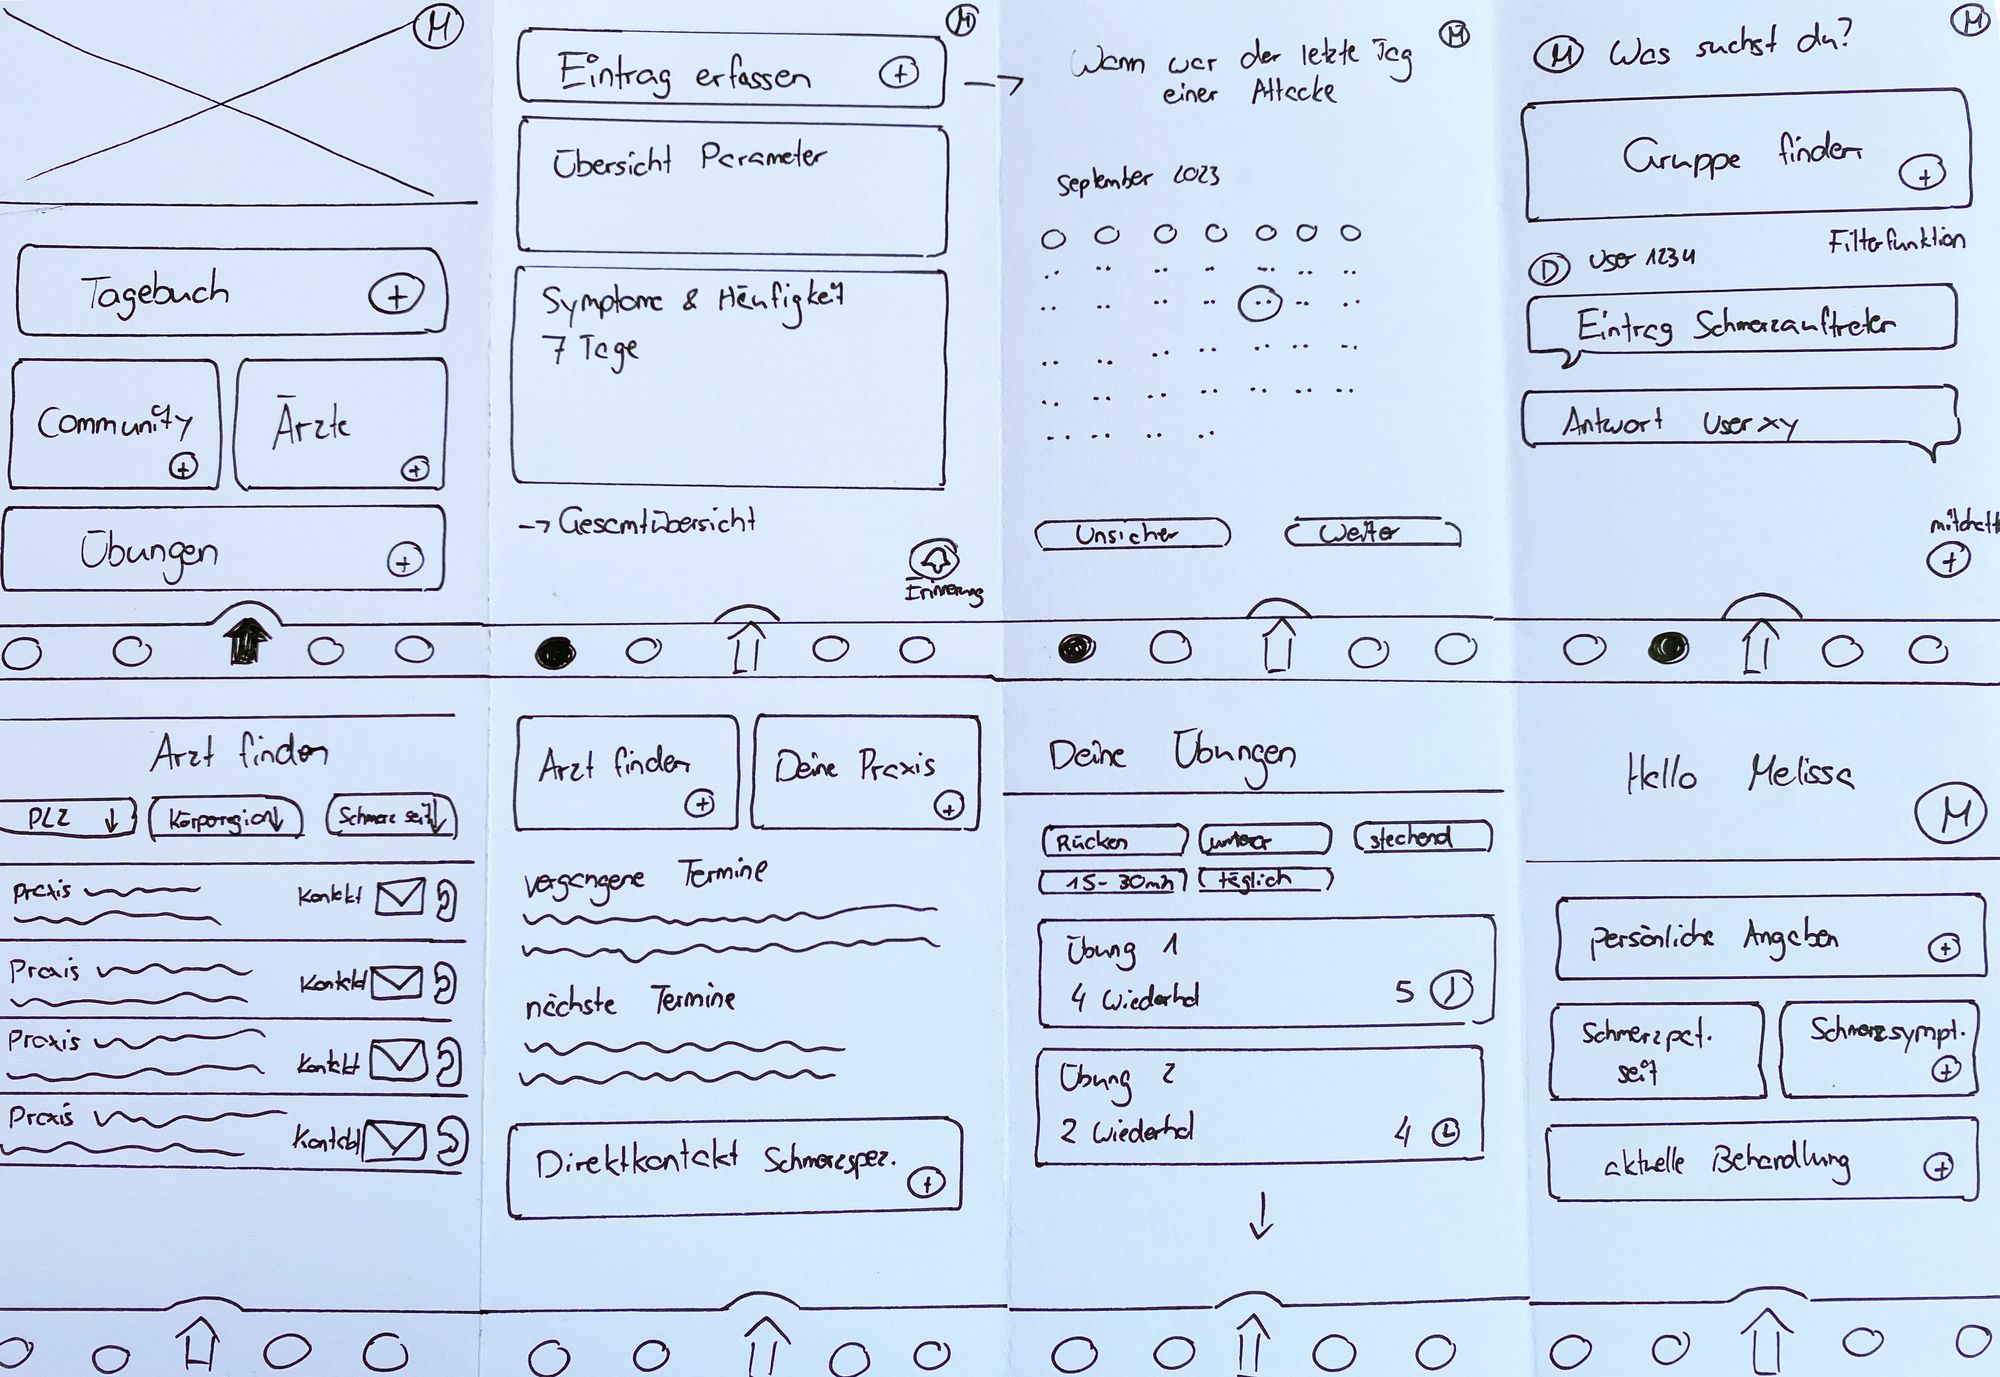 M
Tagebuch
Community
Ärzte
Übungen
M
Eintrag erfassen
Übersicht Parameter
Symptome & Häufigkeit
7 Tage
→ Gesamtübersicht
Erinnerung
M
Wann war der letzte Tag
einer Attacke
September 2023
Unsicher
Weiter
M
M Was suchst du?
Gruppe finden
Filterfunktion
D User 1234
Eintrag Schmerzauftreten
Antwort User xy
Arzt finden
PLZ ↓
Körperregion ↓
Schmerz seit ↓
Praxis
Kontakt
Praxis
Kontakt
Praxis
Kontakt
Praxis
Kontakt
Arzt finden
Deine Praxis
vergangene Termine
nächste Termine
Direktkontakt Schmerzspez.
Deine Übungen
Rücken
unterer
stechend
15-30min
täglich
Übung 1
4 Wiederhol
5
Übung 2
2 Wiederhol
4
Hallo Melissa
M
persönliche Angaben
Schmerzpat.
seit
Schmerzsympt.
aktuelle Behandlung